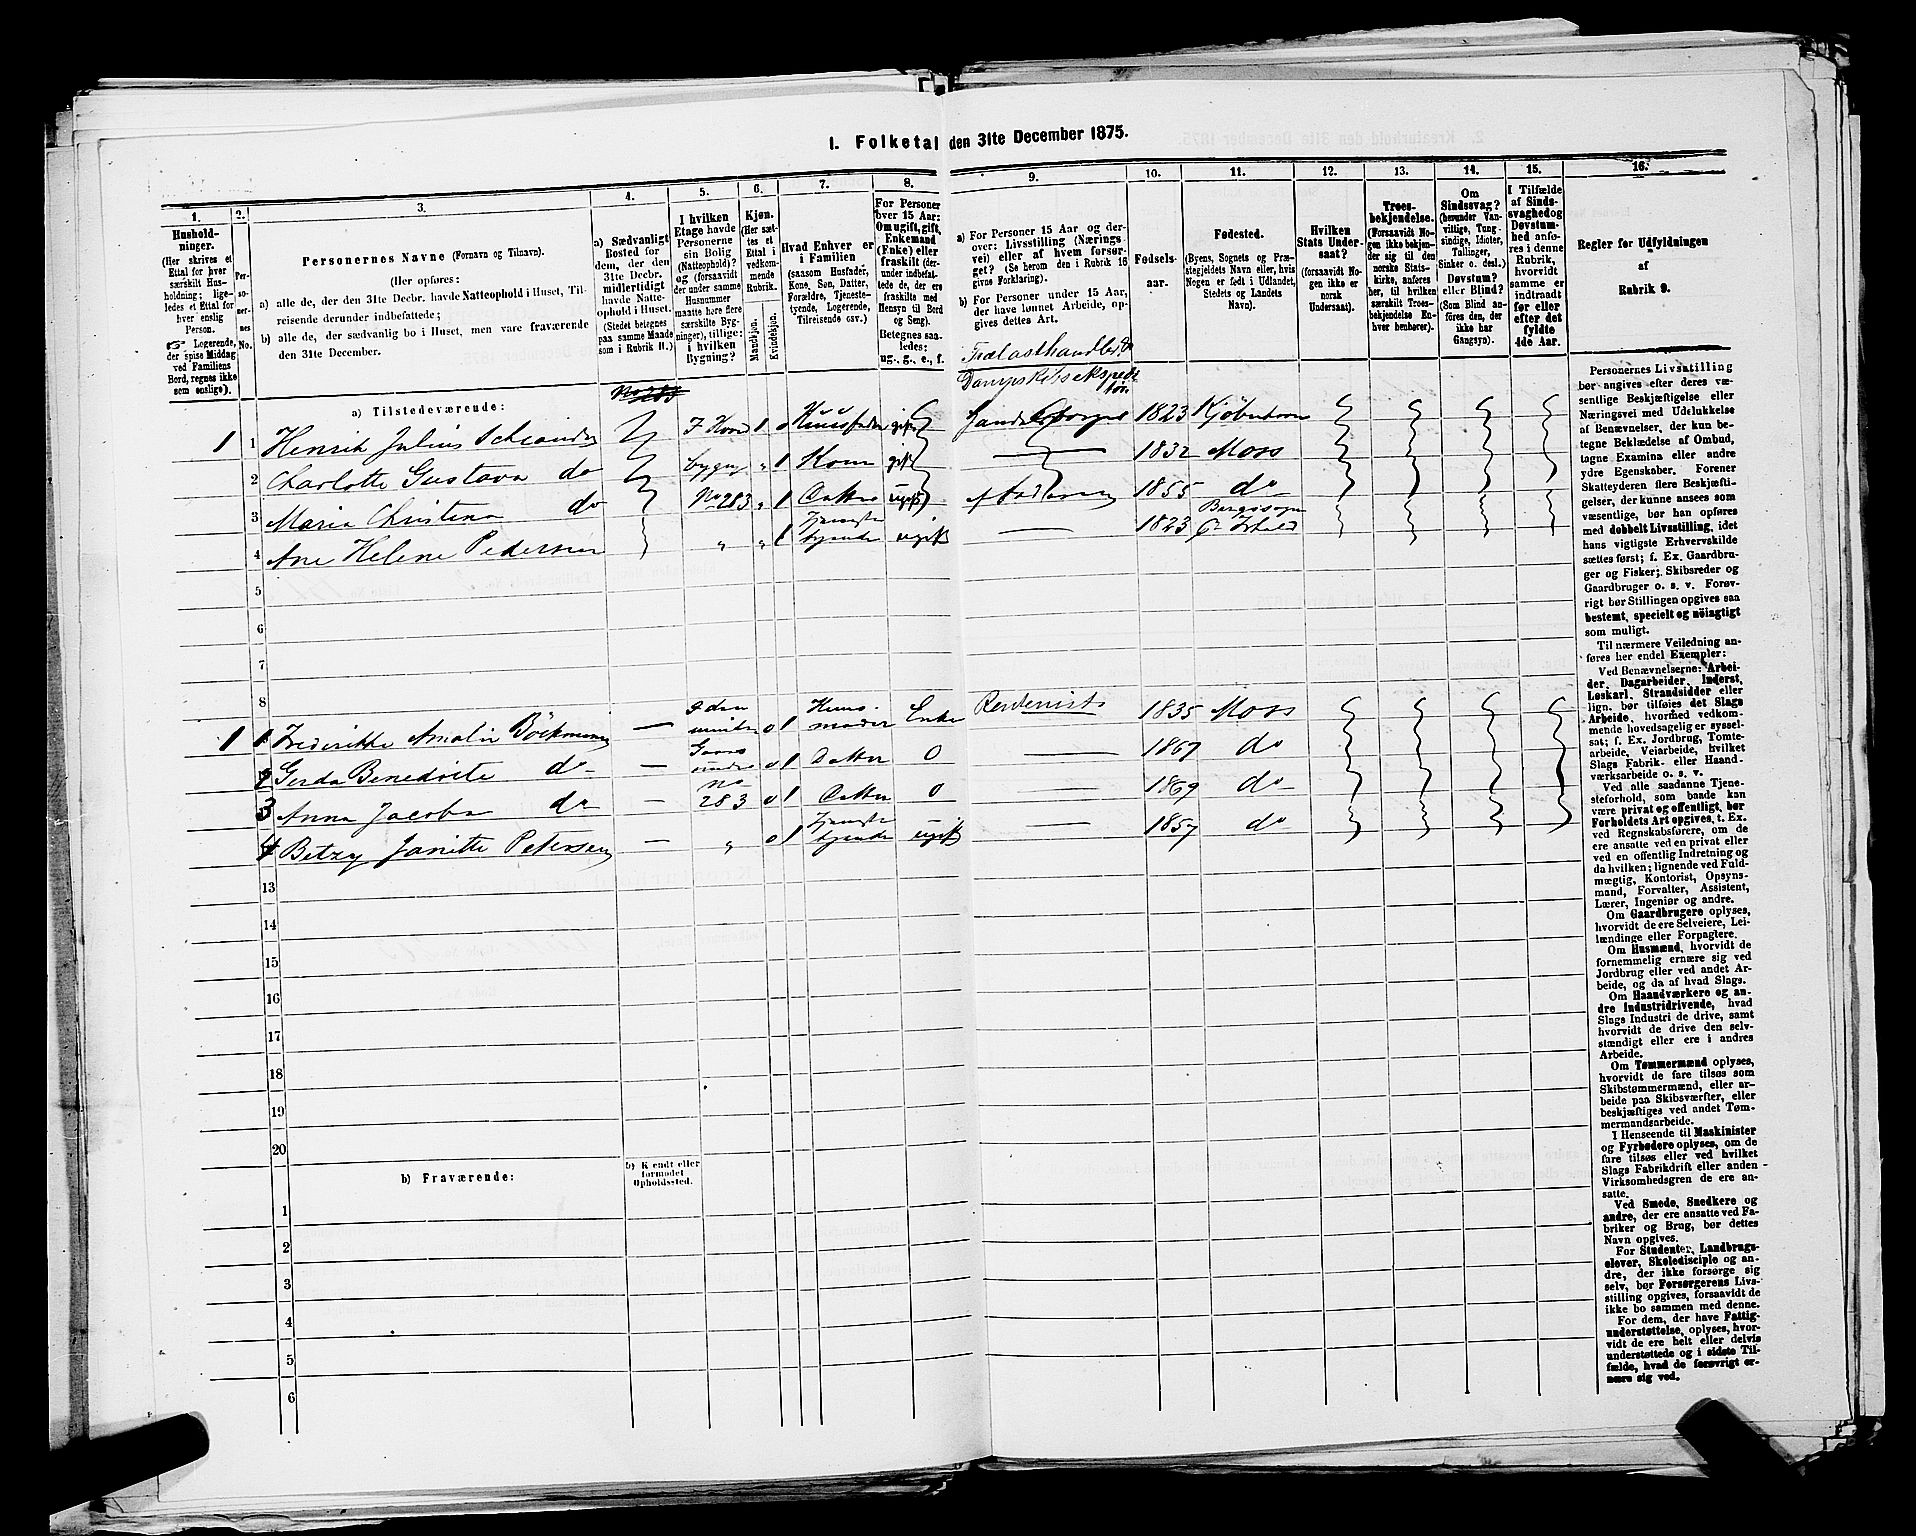 1. Folketal den 31te December 1875.
1.
Hushold-
ninger.
(Her skrives et
Ettal for hver
særskilt Hus-
holdning; lige-
ledes et Ettal for
hver enslig
Person.
☞ Logerende,
der spise Middag
ved Familiens
Bord, regnes ikke
som enslige).
2.
Per-
so-
ner-
nes
No.
3.
Personernes Navne (Fornavn og Tilnavn).
(Her opføres:
a) alle de, der den 31te Decbr. havde Natteophold i Huset, Til-
reisende derunder indbefattede;
b) alle de, der sædvanlig bo i Huset, men vare fraværende
den 31te December.
4.
a) Sædvanligt
Bosted for
dem, der den
31te Decbr.
midlertidigt
havde Natte-
ophold i Huset.
(Stedet betegnes
paa samme Maade
som i Rubrik 11.)
5.
I hvilken
Etage havde
Personerne
sin Bolig
(Natteophold)?
og (forsaavidt
der under samme
Husnummer
maatte høre flere
særskilte Byg-
ninger), tillige:
i hvilken
Bygning?
6.
Kjøn.
(Her sæt-
tes et
Ettal i
vedkom-
mende
Rubrik.
Mandkjøn.
Kvindekjøn.
7.
Hvad Enhver er
i Familien
(saasom Husfader,
Kone, Søn, Datter,
Forældre, Tjeneste-
tyende, Logerende,
Tilreisende osv.)
8.
For Personer
over 15 Aar:
Om ugift, gift,
Enkemand
(Enke) eller
fraskilt (der-
under indbefat-
tede de, der ere
fraskilte med
Hensyn til Bord
og Seng).
Betegnes saa-
ledes:
ug., g., e., f.
9.
a) For Personer 15 Aar og der-
over: Livsstilling (Nærings-
vei) eller af hvem forsør-
get? (Se herom den i Rubrik 16
givne Forklaring).
b) For Personer under 15 Aar,
der have lønnet Arbeide, op-
gives dettes Art.
10.
Fødsels-
aar.
11.
Fødested.
(Byens, Sognets og Præ-
stegjeldets Navn eller, hvis
Nogen er født i Udlandet,
Stedets og Landets
Navn).
12.
Hvilken
Stats Under-
saat?
(forsaavidt No-
gen ikke er
norsk
Undersaat).
13.
Troes-
bekjendelse.
(Forsaavidt No-
gen ikke bekjen-
der sig til den
norske Stats-
kirke, anføres
her, til hvilken
særskilt Troes-
bekjendelse En-
hver henhører).
14.
Om
Sindssvag?
(herunder Van-
vittige, Tung-
sindige, Idioter,
Tullinger,
Sinker o. desl.)
Døvstum?
eller Blind?
(Som Blind an-
føres den, der
ikke har
Gangsyn).
15.
I Tilfælde
af Sinds-
svaghed og
Døvstum-
hed anfø-
res i denne
Rubrik,
hvorvidt
samme er
indtraadt
før eller
efter det
fyldte
4de Aar.
16.
Regler for Udfyldningen
af
Rubrik 9.
a) Tilstedeværende:
No 283
Trælasthandler &
Dampskibsekspedi
tør
1 1 Henrik Julius Schrander I Hoved 1 0 Huusfader gift 1823 Kjøbenhavn
2 Charlotte Gustava do bygn „ 1 Kone gift 1832 Moss
3 Maria Christina do No 283 „ 1 Datter ugift af Faderen 1855 do
4 Ane Helene Pedersen „ „ 1 Tjeneste
tyende ugift 1823
5
6
7
8
1 1 Frederikke Amalie Böckmann — 0 1 Huus-
moder Enke Rentenist 1835 Moss
2 Gerda Benedicte do — 0 1 Datter 0 1867 do
3 Anna Jacoba do — 283 0 1 Datter 0 1869 do
4 Betzy Janitte Petersen — „ 0 1 Tjeneste
tyende ugift 1857 do
13
14
15
16
17
18
19
20
b) Fraværende:
b) Kjendt eller
formodet
Opholdssted.
1
2
3
4
5
6
Personernes Livsstilling
bør angives efter deres væ-
sentlige Beskjæftigelse eller
Næringsvei med Udelukkelse
af Benævnelser, der kun be-
tegne Beklædelse af Ombud,
tagne Examina eller andre
ydre Egenskaber. Forener
Skatteyderen flere Beskjæfti-
gelser, der kunne ansees som
væsentlige, bør han opføres
med dobbelt Livsstilling, idet
hans vigtigste Erhvervskilde
sættes først; f. Ex. Gaardbru-
ger og Fisker; Skibsreder og
Gaardbruger o. s. v. Forøv-
rigt bør Stillingen opgives saa
bestemt, specielt og nöiagtigt
som muligt.
Til nærmere Veiledning an-
føres her endel Exempler:
Ved Benævnelserne: Arbei-
der, Dagarbeider, Inderst,
Løskarl, Strandsidder eller
lign. bør tilføies det Slags
Arbeide, hvormed vedkom-
mende hovedsagelig er syssel-
sat; f. Ex. Jordbrug, Tomte-
arbeide, Veiarbeide, hvilket
Slags Fabrik- eller Haand-
værksarbeide o. s. v.
Ved alle saadanne Tjene-
steforhold, som baade kan
være privat og offentligt, bør
Forholdets Art opgives, t. Ex.
ved Regnskabsførere, om de
ere ansatte ved en privat eller
ved en offentlig Indretning og
da hvilken; lignende ved Fuld-
mægtig, Kontorist, Opsyns-
mand, Forvalter, Assistent,
Lærer, Ingeniør og andre.
Om Gaardbrugere oplyses,
hvorvidt de ere Selveiere, Lei-
lændinge eller Forpagtere.
Om Husmænd, hvorvidt de
fornemmelig ernære sig ved
Jordbrug eller ved andet Ar-
beide, og da af hvad Slags.
Om Haandværkere og an-
dre Industridrivende, hvad
Slags Industri de drive, samt
hvorvidt de drive den selv-
stændigt eller ere i andres
Arbeide.
Om Tømmermænd oplyses,
hvorvidt de fare tilsøs som
Skibstømmermænd, eller ar-
beide paa Skibsværfter, eller
beskjæftiges ved andet Tøm-
mermandsarbeide.
I Henseende til Maskinister
og Fyrbødere oplyses, om de
fare tilsøs eller ved hvilket
Slags Fabrikdrift eller anden
Virksomhedsgren de ere an-
satte.
Ved Smede, Snedkere og
andre, der ere ansatte ved Fa-
briker og Brug, bør dettes
Navn opgives.
For Studenter, Landbrugs-
elever, Skoledisciple og an-
dre, der ikke forsørge sig
selv, bør Forsørgerens Livs-
stilling opgives, forsaavidt de
ikke bo sammen med denne.
For dem, der have Fattig-
understøttelse, oplyses, hvor-
vidt de ere helt eller delvis
understøttede og i sidste Til-
fælde, hvad de forøvrigt er-
nære sig ved.